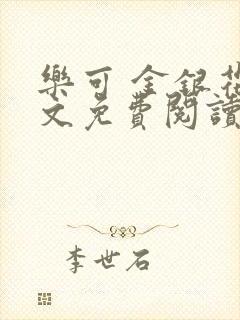 樂可 金銀花
文免費閱讀
李世石